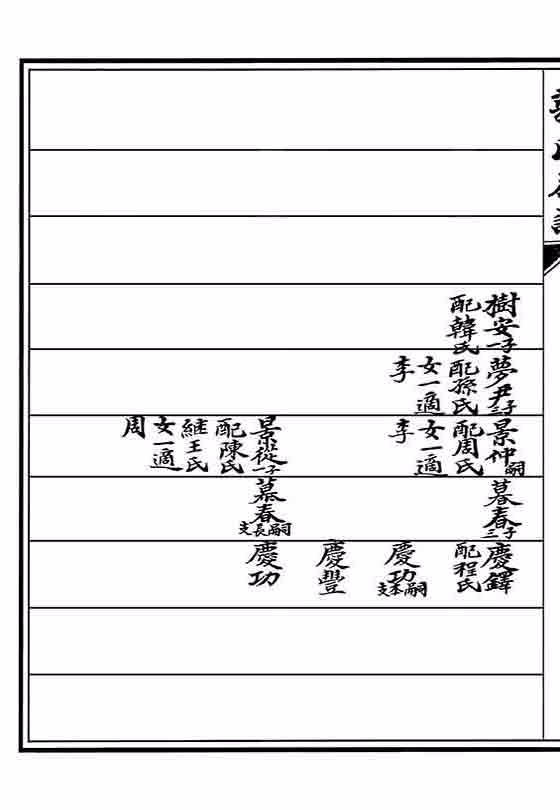 樹安一子
配韓氏
夢尹二子
配孫氏
女一適
李
景仲嗣
配周氏
女一適
李
景從一子
配陳氏
繼王氏
女一適
周
暮春三子
慕春嗣長支
慶鐸
配程氏
慶功嗣本支
慶豐
慶功